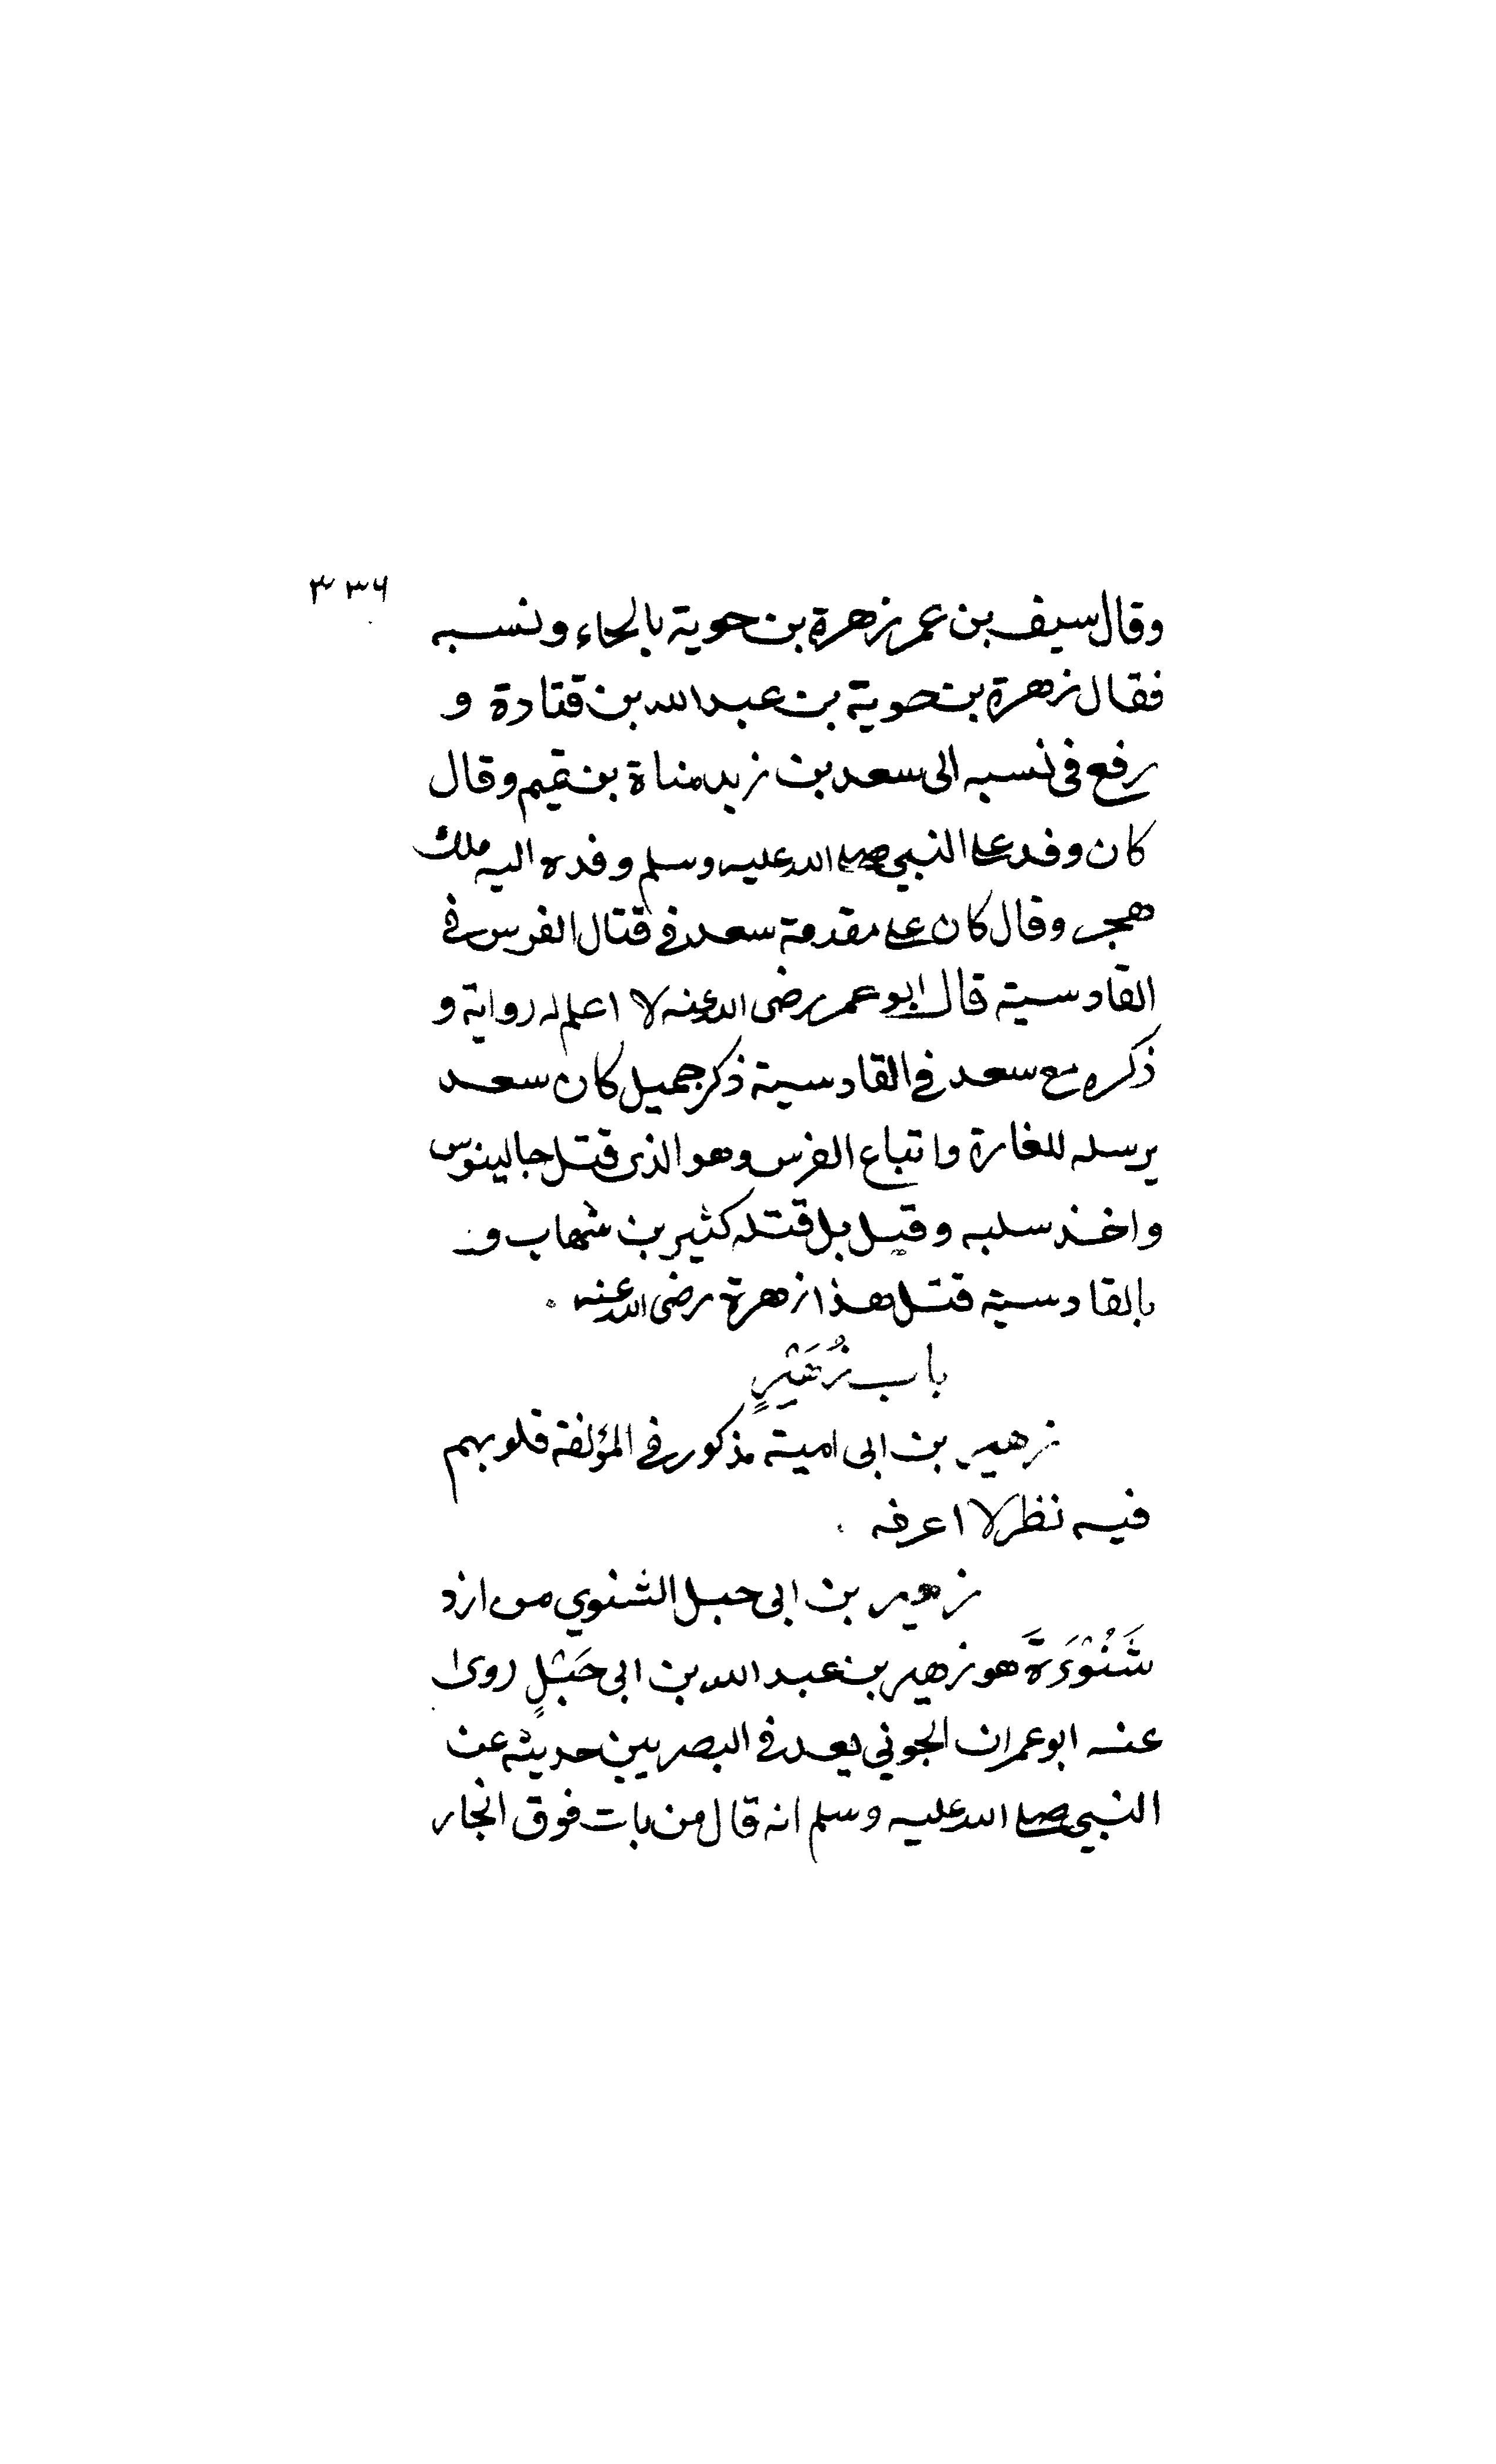 ٣٣٦
وقال سيف بن عمر زهرة بن حوية بالحاء ونسبه
فقال زهرة بن حوية بن عبد الله بن قتادة و
رفع فى نسبه الى سعد بن زيد مناة بن تميم وقال
كان وفد على النبي صلى الله عليه وسلم وفده اليه ملك
هجر وقال كان على مقدمة سعد في قتال الفرس في
القادسية قال ابو عمر رضى الله عنه لا اعلم له رواية و
ذكره مع سعد في القادسية ذكر جميل كان سعد
يرسله للغارة واتباع الفرس وهو الذى قتل جالينوس
واخذ سلبه وقيل بل قتله كثير بن شهاب و
بالقادسية قتل هذا زهرة رضى الله عنه
باب زُهَيْرٍ
زهير بن ابى امية مذكور في المؤلفة قلوبهم
فيه نظر لا اعرفه
زهير بن ابى جبل الشنوي من ازد
شَنُوْءَةَ هو زهير بن عبد الله بن ابى جَبَلٍ روى
عنه ابو عمران الجوني يعد في البصريين حديثه عن
النبي صلى الله عليه وسلم انه قال من بات فوق انجار